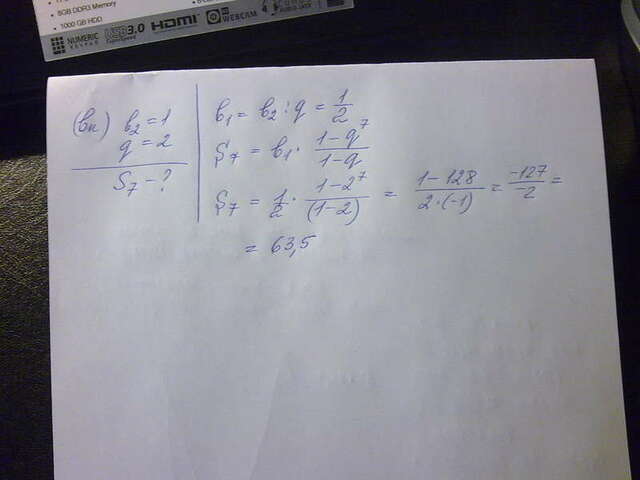 8GB DDR3 Memory
1000 GB HDD
NUMERIC KEYPAD USB3.0 HDMI WEBCAM
(bn) b₂ = 1
q = 2
S₇ - ?
b₁ = b₂ : q = 1/2
S₇ = b₁ · (1 - q⁷)/(1 - q)
S₇ = 1/2 · (1 - 2⁷)/(1 - 2) = (1 - 128)/(2 · (-1)) = -127/-2 =
= 63,5